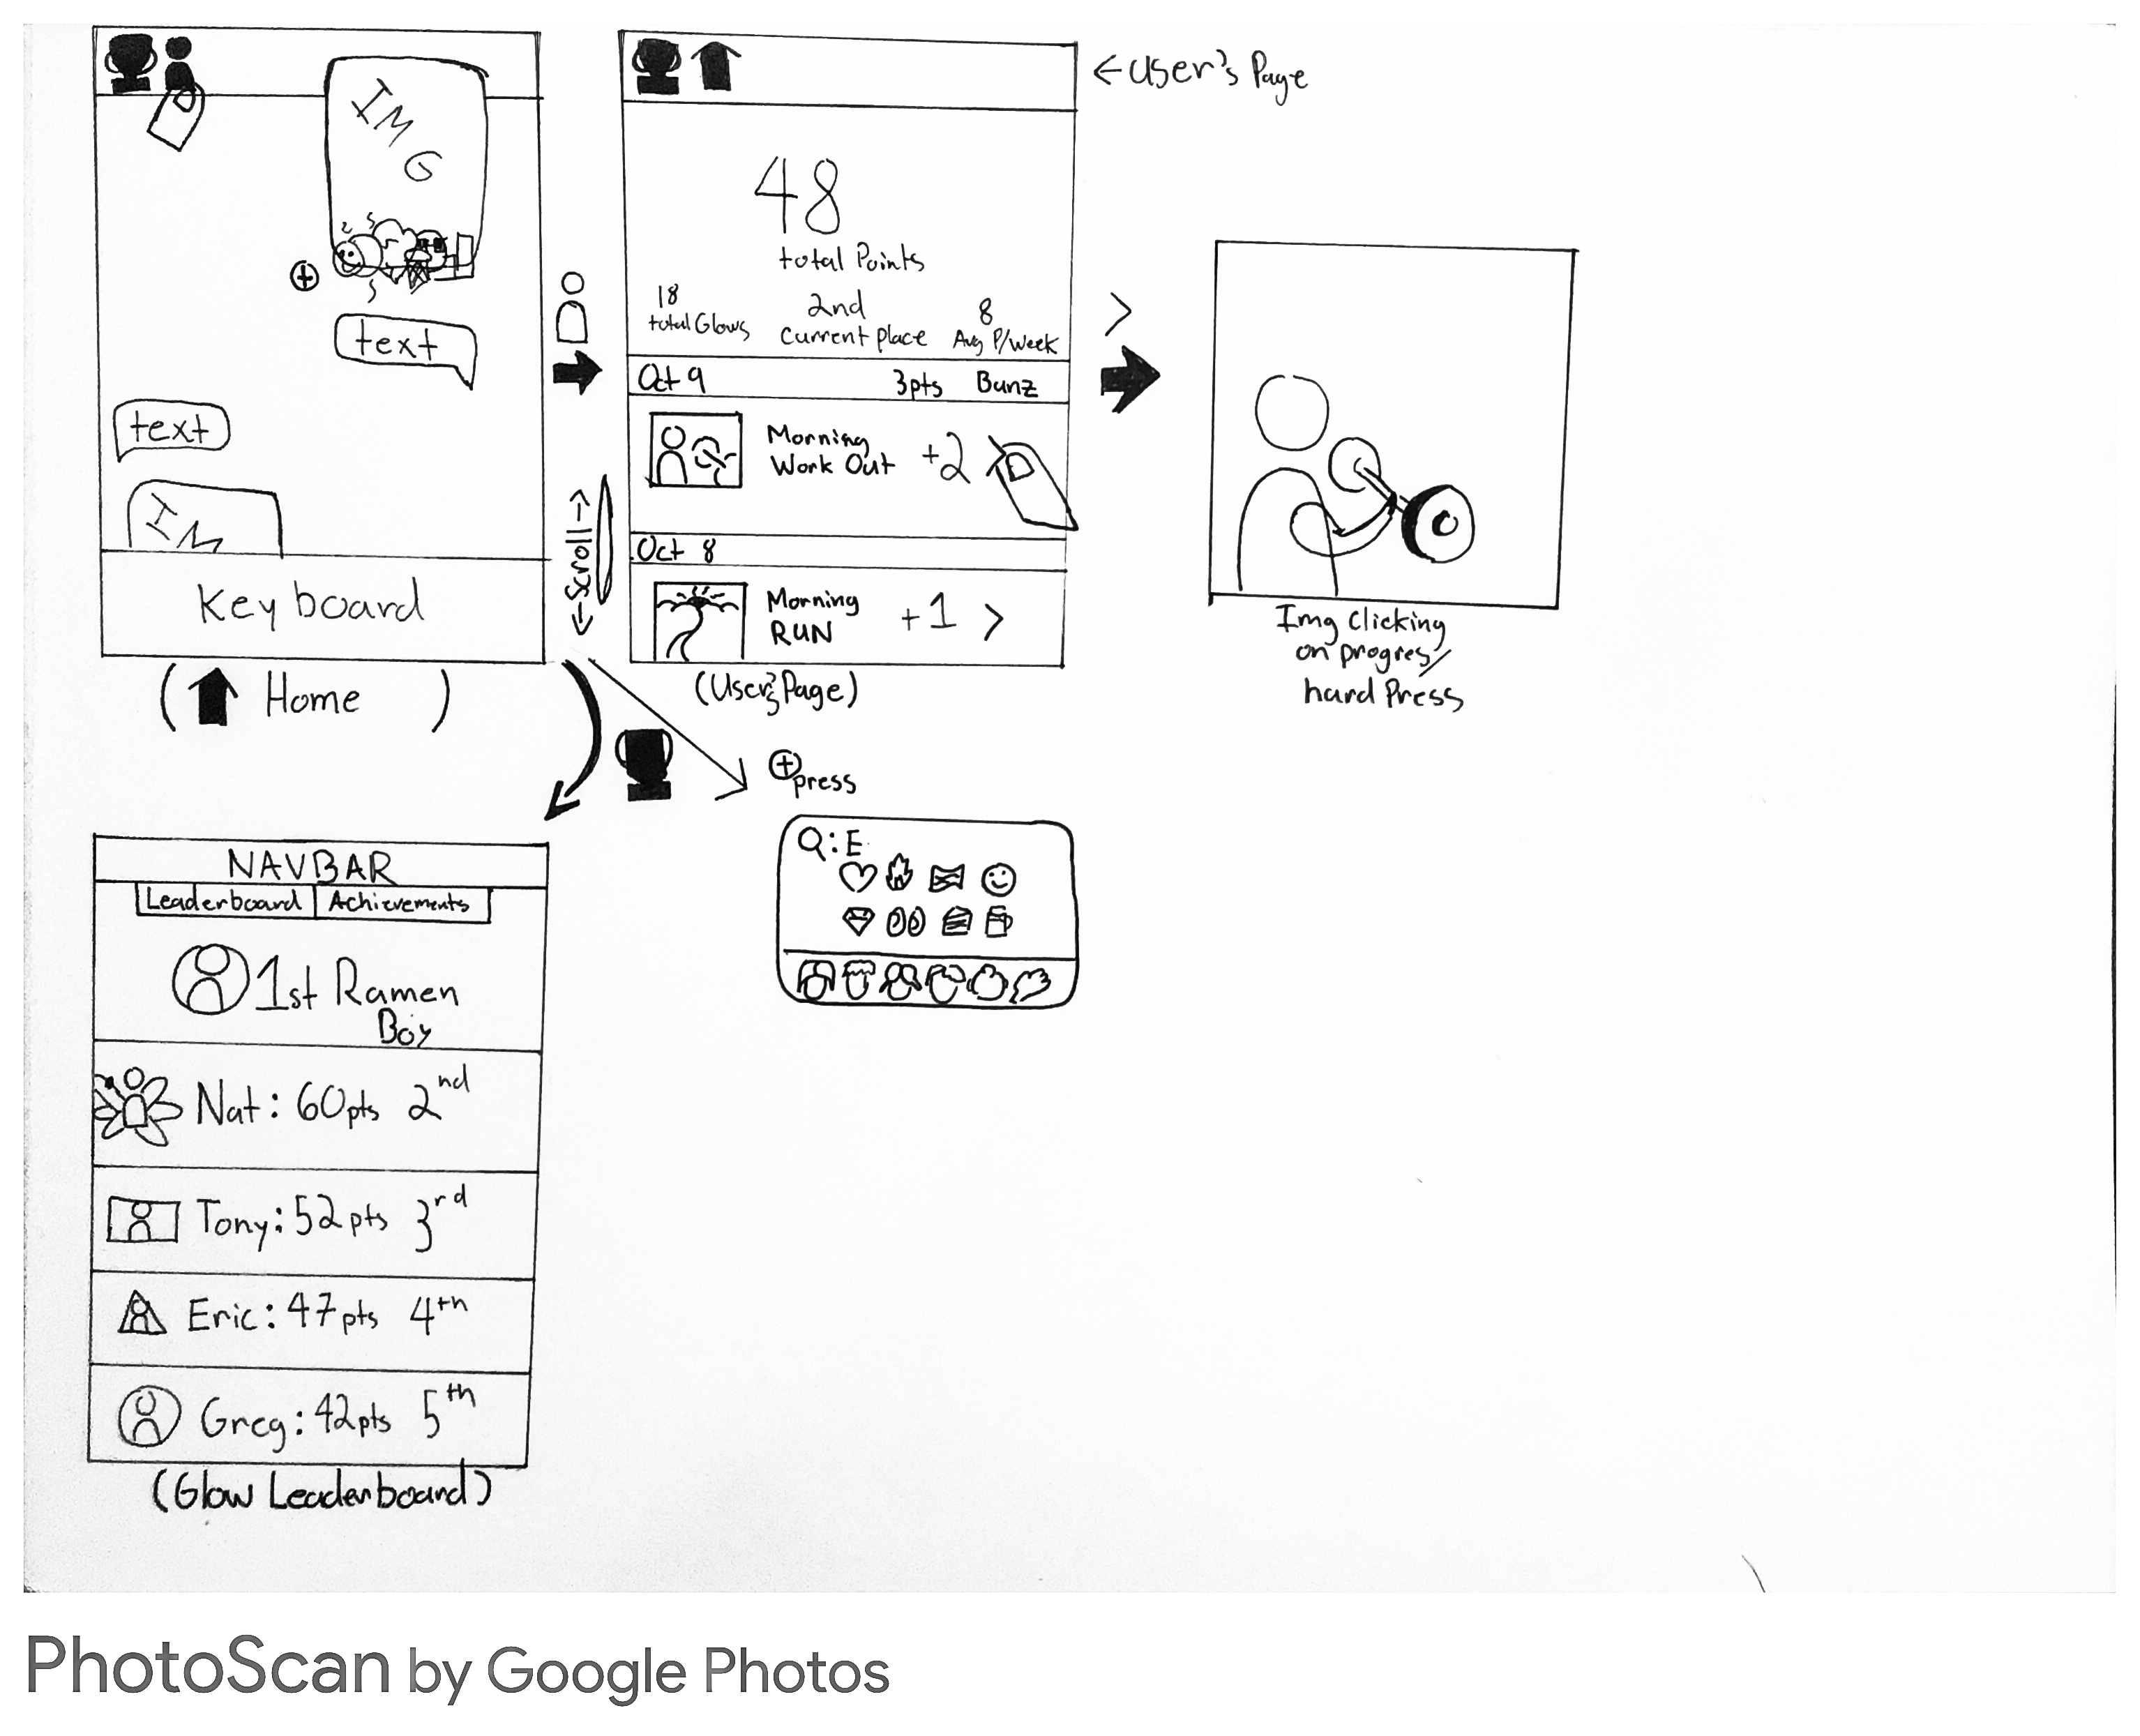 IMG
text
text
IM
Keyboard
( Home )
←Scroll→
←User's Page
48
total Points
18
total Glows
2nd
Current place
8
Avg P/Week
Oct 9 3pts Bunz
Morning
Work Out +2
Oct 8
Morning
RUN +1 >
(User's Page)
>
Img Clicking
on progres/
hard Press
+
press
Q:E
NAVBAR
Leaderboard Achievements
1st Ramen
Boy
Nat: 60pts 2nd
Tony: 52pts 3rd
Eric: 47pts 4th
Greg: 42pts 5th
(Glow Leaderboard)
PhotoScan by Google Photos